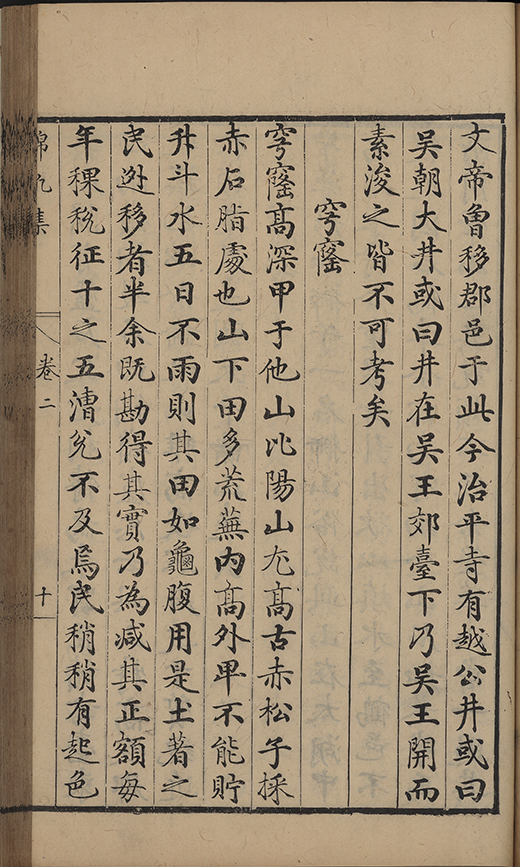 文帝曾移郡邑于此今治平寺有越公井或曰
吳朝大井或曰井在吳王郊臺下乃吳王開而
素浚之皆不可考矣
穹窿
穹窿高深甲于他山比陽山尤高古赤松子採
赤石脂處也山下田多荒蕪內高外卑不能貯
升斗水五日不雨則其田如龜腹用是土著之
民迯移者半余既勘得其實乃為減其正額每
年稞稅征十之五漕兊不及焉民稍稍有起色
錦凢集
卷二
十